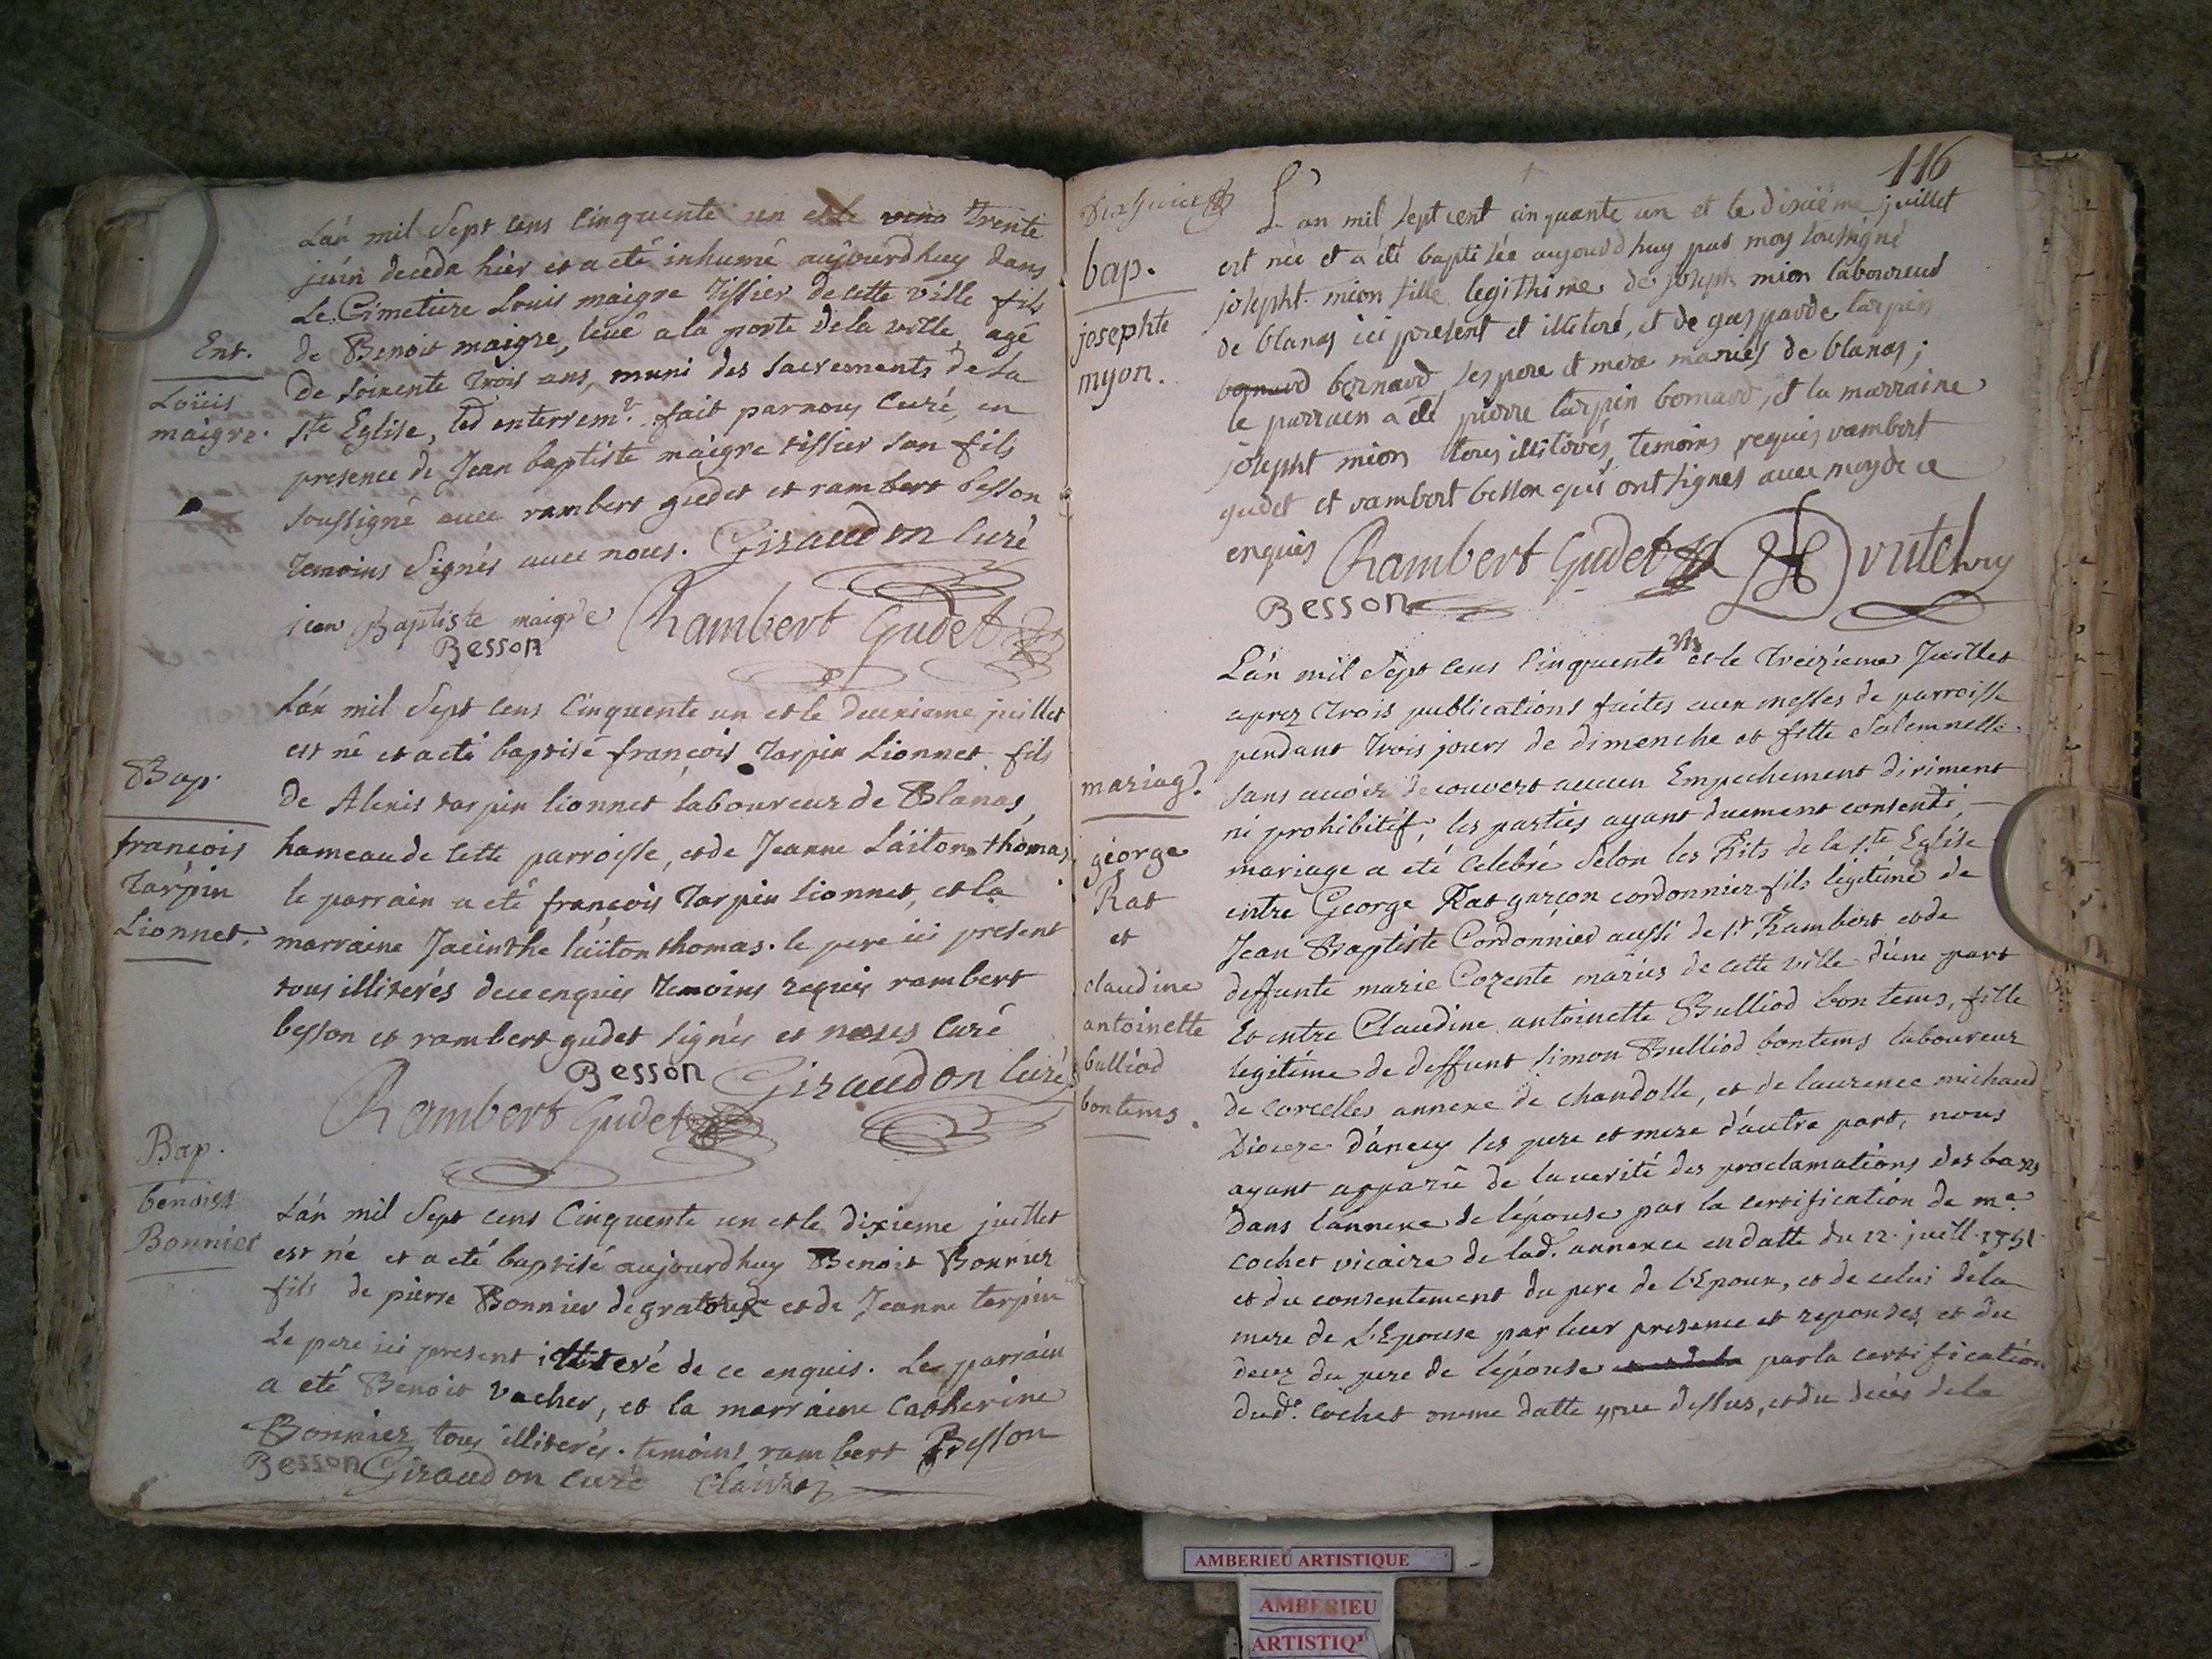 L'an mil Sept cens Cinquente un et le Trente
juin deceda hier et a eté inhumé aujourdhuy dans
Le Cimetiere Louis maigre Tissier de cette ville fils
Ent.
de Benoit maigre, levé a la porte de la ville, agé
Loüis
de soixente trois ans, muni des sacrements de la
maigre.
ste Eglise, led enterremt. fait par nous Curé, en
presence de Jean baptiste maigre tissier son fils
soussigné avec rambert gudet et rambert besson
Temoins Signés avec nous. Giraudon Curé
jean Baptiste maigre Rambert Gudet
Besson
L'an mil Sept cens Cinquente un et le deuxieme juillet
est né et a eté baptisé françois Tarpin Lionnet fils
Bap.
de Alexis tarpin lionnet laboureur de Blanas,
françois
hameau de cette parroisse, et de Jeanne Läiton thomas,
Tarpin
le parrain a eté françois Tarpin Lionnet, et la
Lionnet.
marraine Jacinthe läiton thomas. le pere ici present
tous illiterés de ce enquis Temoins requis rambert
besson et rambert gudet signés et nous Curé
Besson Giraudon Curé
Rambert Gudet
Bap.
benoist
Bonnier
L'an mil Sept cens Cinquente un et le dixieme juillet
est né et a eté baptisé aujourdhuy Benoit Bonnier
fils de pierre Bonnier de gratoux et de Jeanne tarpin
Le pere ici present illiteré de ce enquis. Le parrain
a eté Benoit Vacher, et la marraine Catherine
Bonnier tous illiterés. temoins rambert Besson
Besson Giraudon curé
116
L'an mil sept cent cinquante un et le dixième juillet
bap.
est née et a été baptisée aujourdhuy par moy soussigné
josephte
josepht mion fille legithime de joseph mion laboureur
myon.
de blanas ici present et illiteré, et de gasparde tarpin
bernard, ses pere et mere mariés de blanas;
le parrain a été pierre tarpin bernard, et la marraine
josepht mion tous illiterés, temoins requis rambert
gudet et rambert besson qui ont signes avec moy de ce
enquis Rambert Gudet
Besson
L'an mil Sept cens Cinquente un et le Treizieme Juillet
aprez Trois publications faites aux messes de parroisse
pendant Trois jours de dimenche et fette Solemnelle
mariag?
sans avoir decouvert aucun Empechement diriment
ni prohibitif, les parties ayant duement consenti,
george
mariage a eté Celebré Selon les Rits de la ste Eglise
Rat
entre George Rat garçon cordonnier fils légitime de
et
Jean Baptiste Cordonnier aussi de st Rambert et de
claudine
deffunte marie Cozente mariés de cette ville d'une part
antoinette
Et entre Claudine antoinette Bulliod bontems, fille
bulliod
legitime de deffunt simon Bulliod bontems laboureur
bontems.
de corcelles annexe de chandolle, et de laurence michaud
Dioceze d'anecy ses pere et mere d'autre part, nous
ayant apparu de la verité des proclamations des bans
dans l'annexe de l'épouse par la certification de me.
cochet vicaire de lad. annexe en datte du 12. juill. 1751
et du consentement du pere de l'Epoux, et de celui de la
mere de L'Epouse par leur presence et reponses, et du
decez du pere de lépouse par la certification
dud. Cochet meme datte que dessus, et du décès de la
AMBERIEU ARTISTIQUE
AMBERIEU
ARTISTIQ